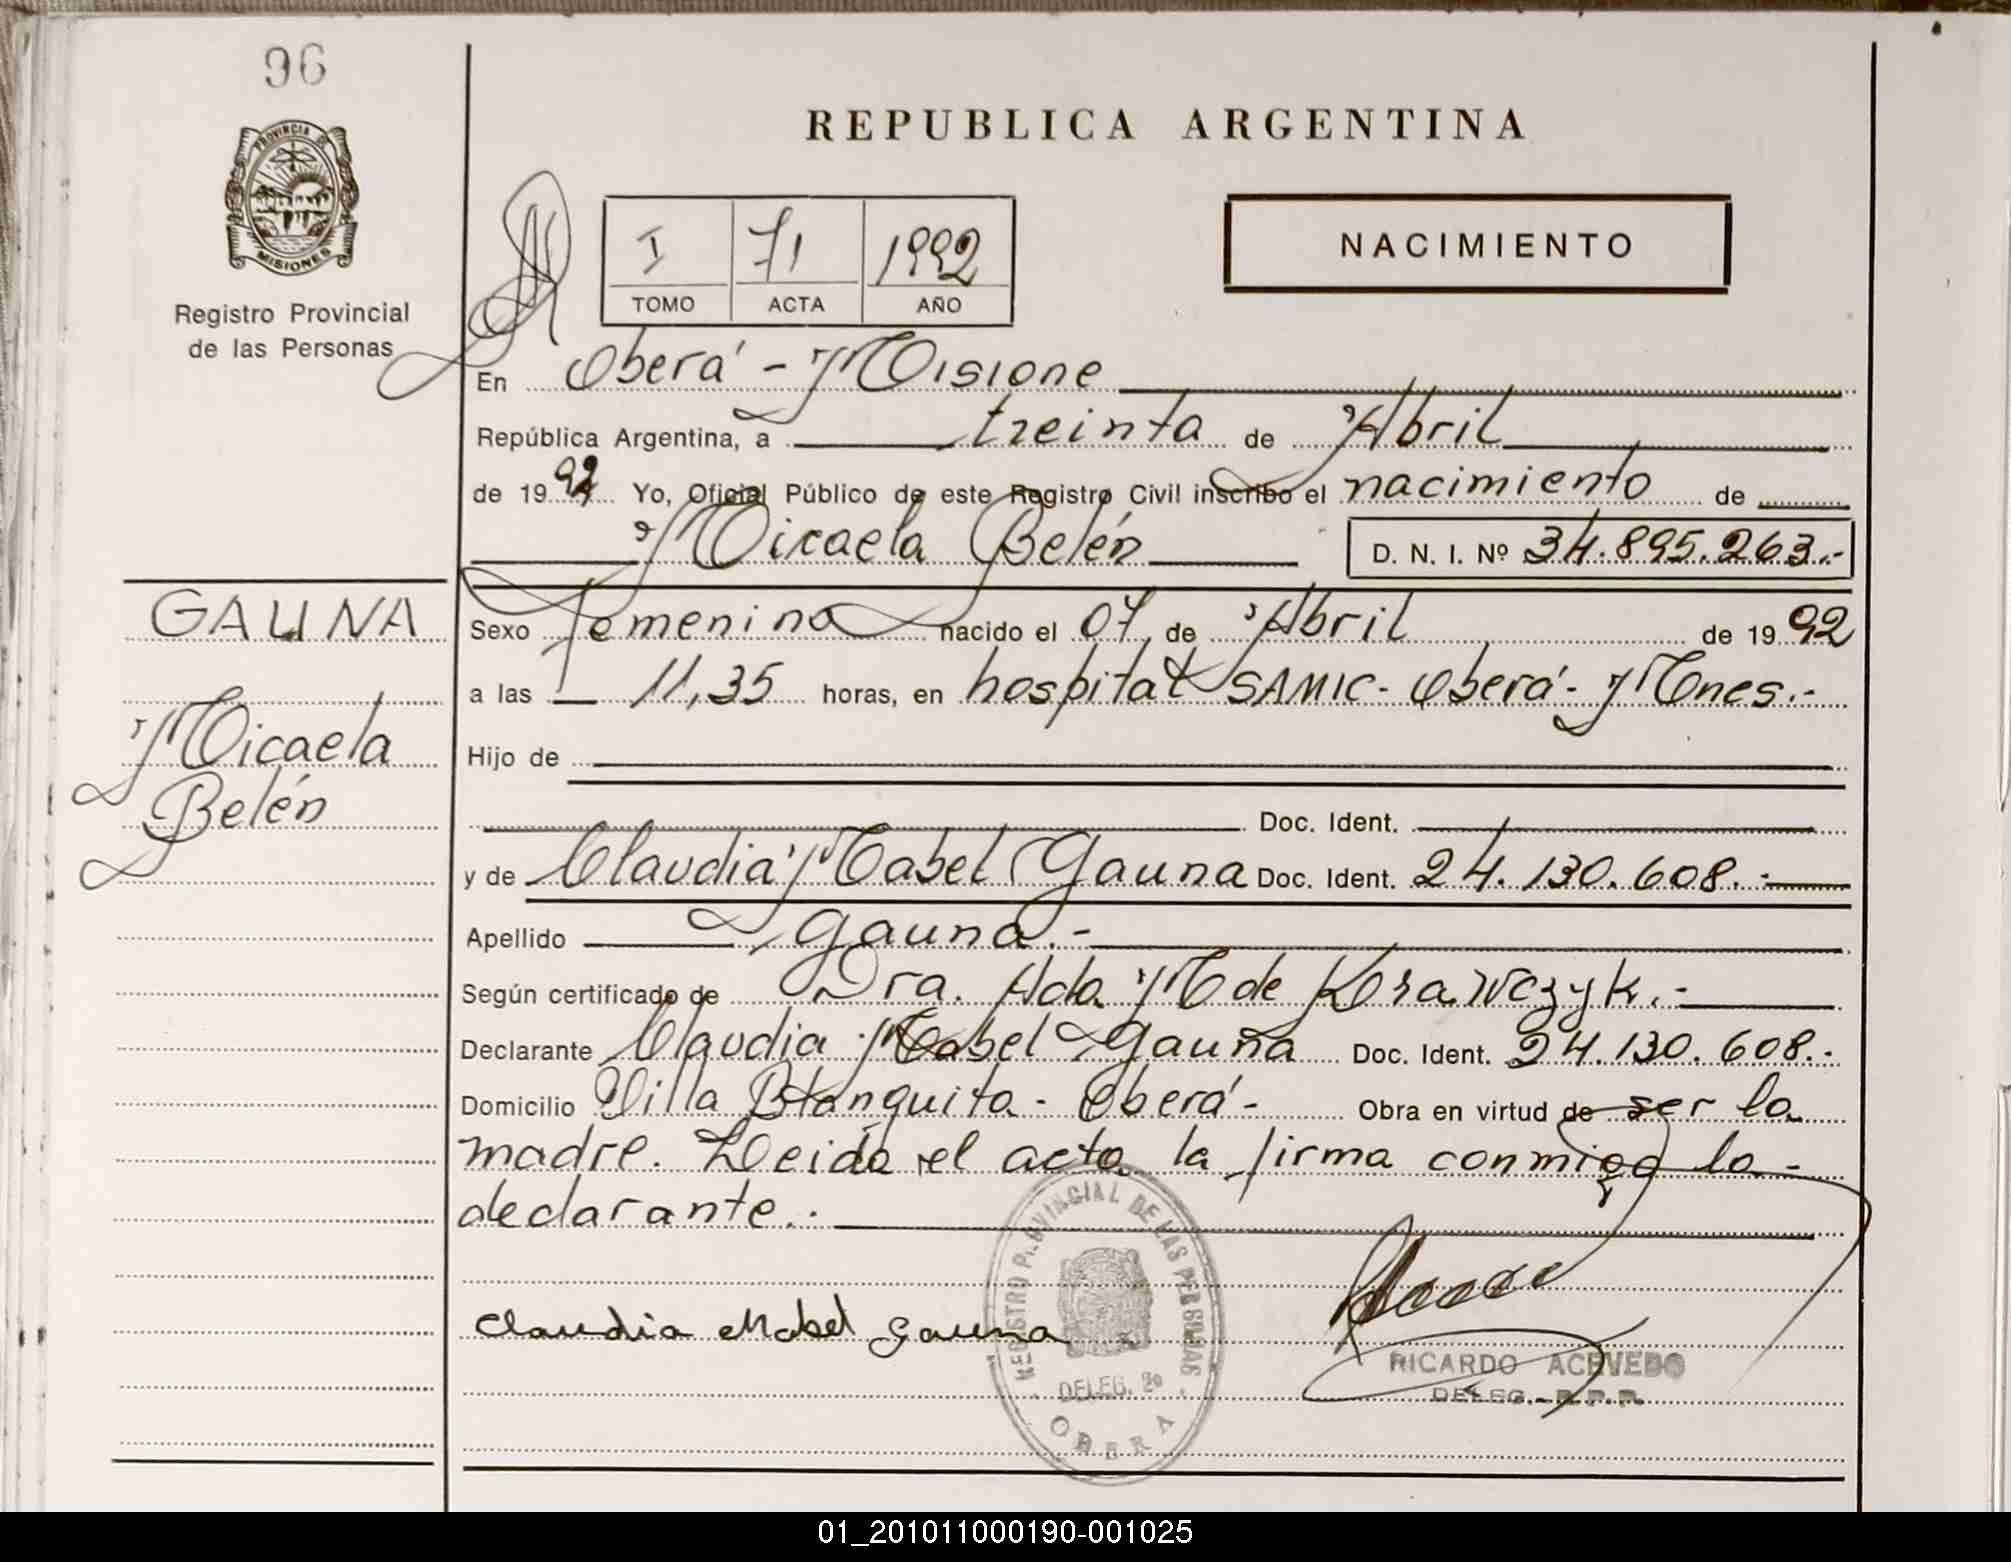 96
PROVINCIA
MISIONES
Registro Provincial
de las Personas
REPUBLICA ARGENTINA
I 71 1992
TOMO ACTA AÑO
NACIMIENTO
En Oberá - Misione
República Argentina, a treinta de Abril
de 1992 Yo, Oficial Público de este Registro Civil inscribo el nacimiento de
Micaela Belén D. N. I. Nº 34.895.263.-
GAUNA
Micaela
Belén
Sexo femenino nacido el 07 de Abril de 1992
a las 11,35 horas, en hospital SAMIC - Oberá - Mnes.-
Hijo de
Doc. Ident.
y de Claudia Mabel Gauna Doc. Ident. 24.130.608.-
Apellido Gauna.-
Según certificado de Dra. Ada M de Krawczyk.-
Declarante Claudia Mabel Gauna Doc. Ident. 24.130.608.-
Domicilio Villa Blanquita - Oberá - Obra en virtud de ser la
madre. Leida el acta la firma conmigo la -
declarante.-
Claudia Mabel Gauna
REGISTRO PROVINCIAL DE LAS PERSONAS
DELEG. 2a
OBERA
RICARDO ACEVEDO
DELEG. - R.P.P.
01_201011000190-001025